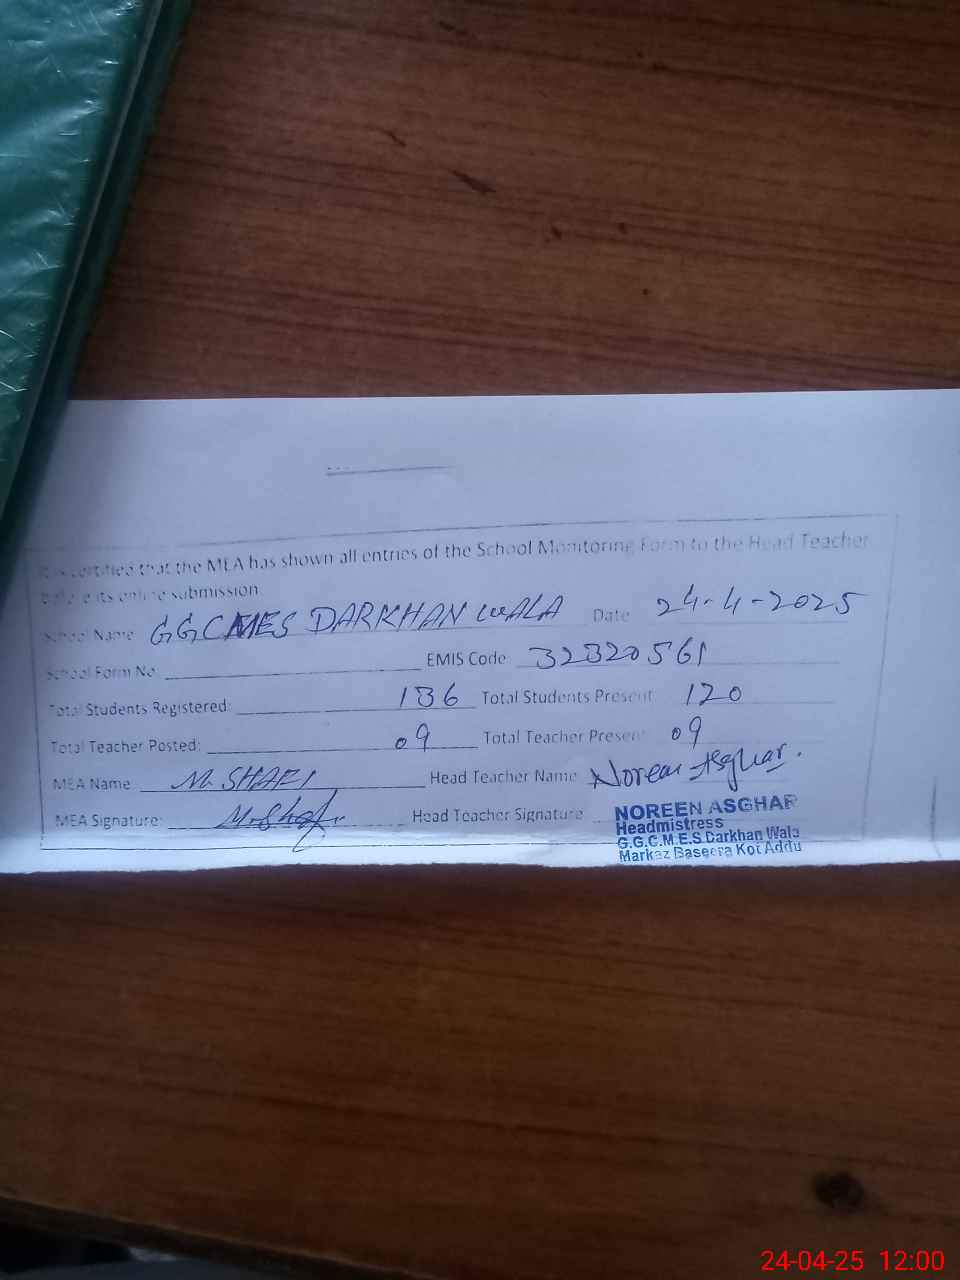 It is certified that the MEA has shown all entries of the School Monitoring Form to the Head Teacher
before its online submission.
School Name GGCMES DARKHAN WALA Date 24-4-2025
School Form No EMIS Code 32320561
Total Students Registered: 136 Total Students Present 120
Total Teacher Posted: 09 Total Teacher Present 09
MEA Name M. SHAFI Head Teacher Name Noreen Asghar.
MEA Signature: M.Shafi Head Teacher Signature
NOREEN ASGHAR
Headmistress
G.G.C.M.E.S Darkhan Wala
Markaz Baseera Kot Addu
24-04-25 12:00